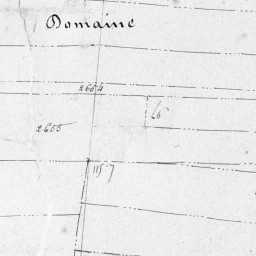 Domaine
2664
2655
1157